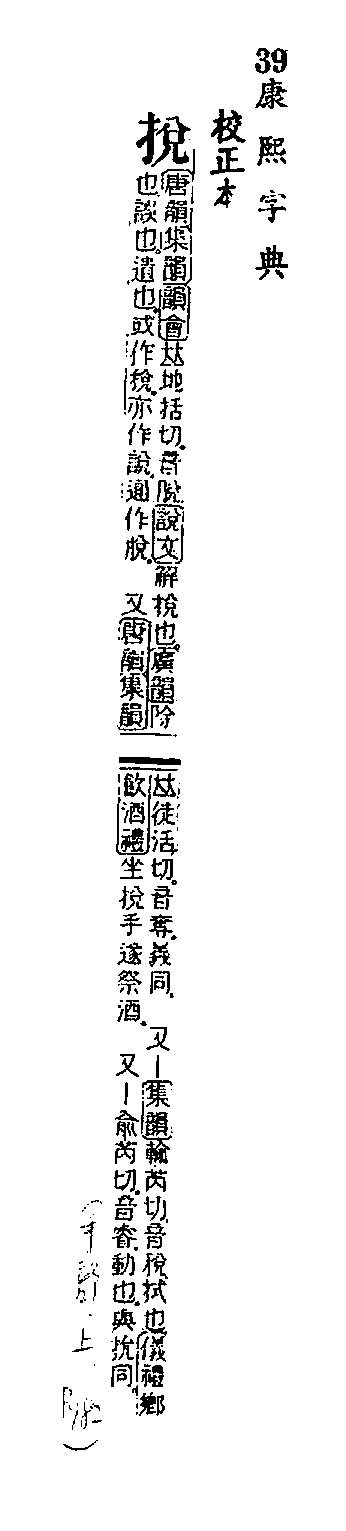 39康熙字典
校正本
挩
唐韻集韻韻會𠀤地括切音脫說文解挩也廣韻除
也談也遺也或作挩亦作說通作脫 又唐韻集韻
𠀤徒活切音奪義同 又丨集韻輸芮切音稅拭也儀禮鄉
飲酒禮坐挩手遂祭酒 又丨俞芮切音睿動也與捝同
上